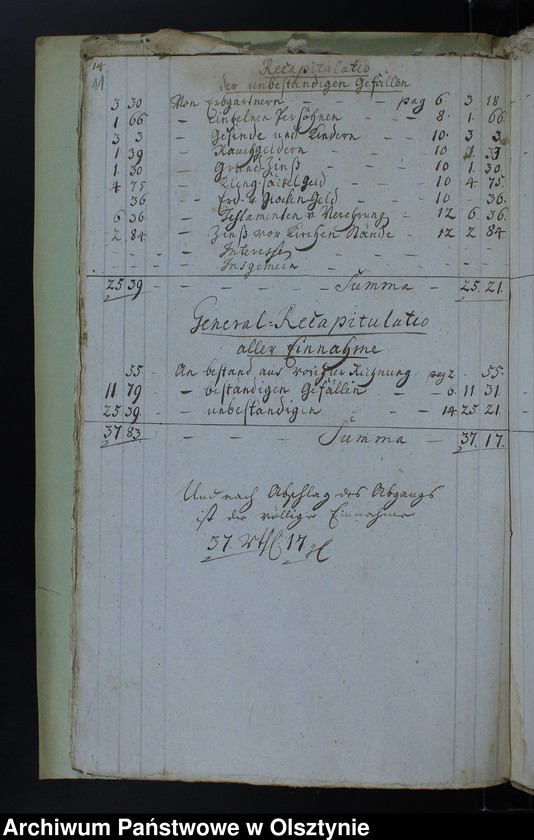 14
11
Recapitulatio
der unbeständigen Gefällen
3 30 Von Erbgärtnern - - - pag 6 3 18
1 66 - Einzelnen Persohnen - - 8 1 66
3 3 - Gesinde und Kindern - 10 3 3
1 39 - Rauchgeldern - - 10 1 33
1 30 - Grund-Zinß - - 10 1 30
4 75 - Kling-Säckel Geld - 10 4 75
36 - Erd- u Glocken-Geld - 10 - 36
6 36 - Testamenten u Verehrung - 12 6 36
2 84 - Zinß vor Kirchen Stände - 12 2 84
- - - Interessen - - - -
- - - Insgemein - - - -
25 39 - - - Summa - 25 21
General-Recapitulatio
aller Einnahme
55 - An bestand aus voriger Rechnung pag 2 - 55
11 79 - beständigen Gefällen - 6 11 31
25 39 - unbeständigen - - 14 25 21
37 83 - - - Summa - 37 17
Und nach Abschlag des Abgangs
ist die völlige Einnahme
37 Rthl 17 gl
Archiwum Państwowe w Olsztynie